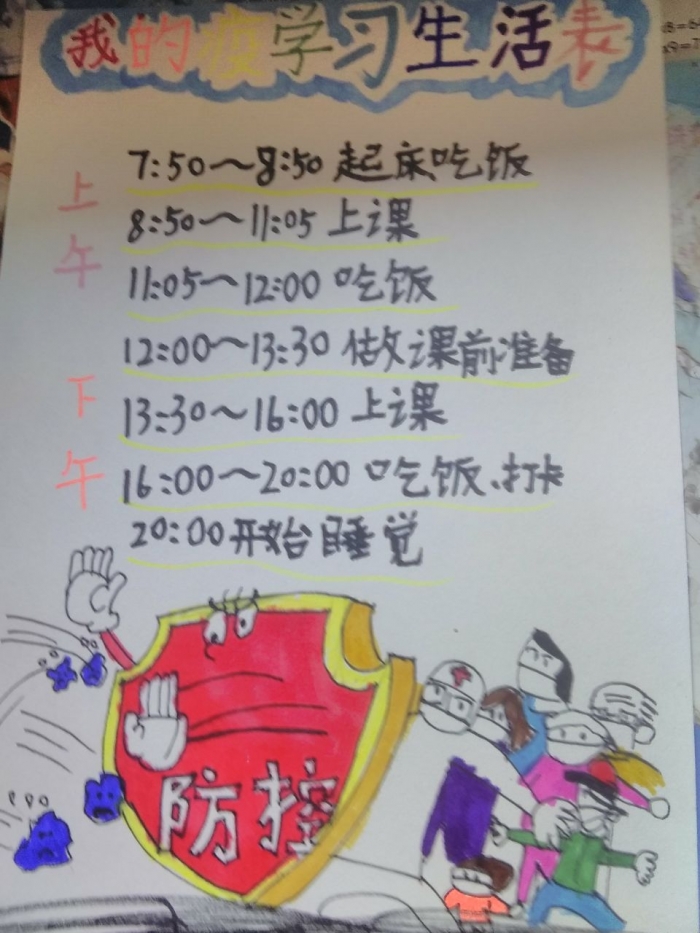 我的疫学习生活表
上午
7:50～8:50 起床吃饭
8:50～11:05 上课
11:05～12:00 吃饭
12:00～13:30 做课前准备
下午
13:30～16:00 上课
16:00～20:00 吃饭、打卡
20:00开始睡觉
防控